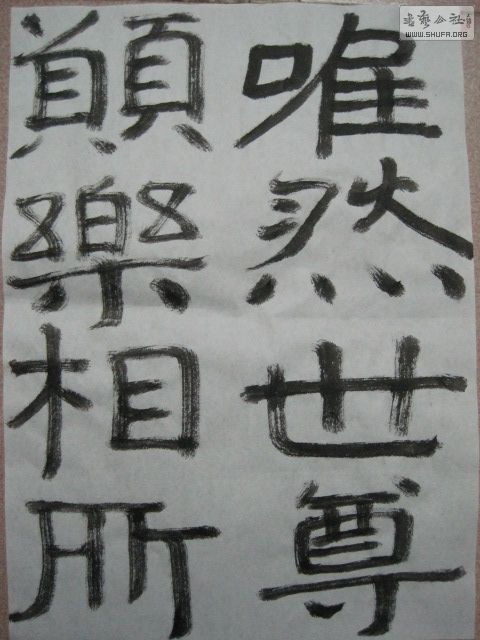 書藝公社
WWW.SHUFA.ORG
唯然世尊
願樂相所